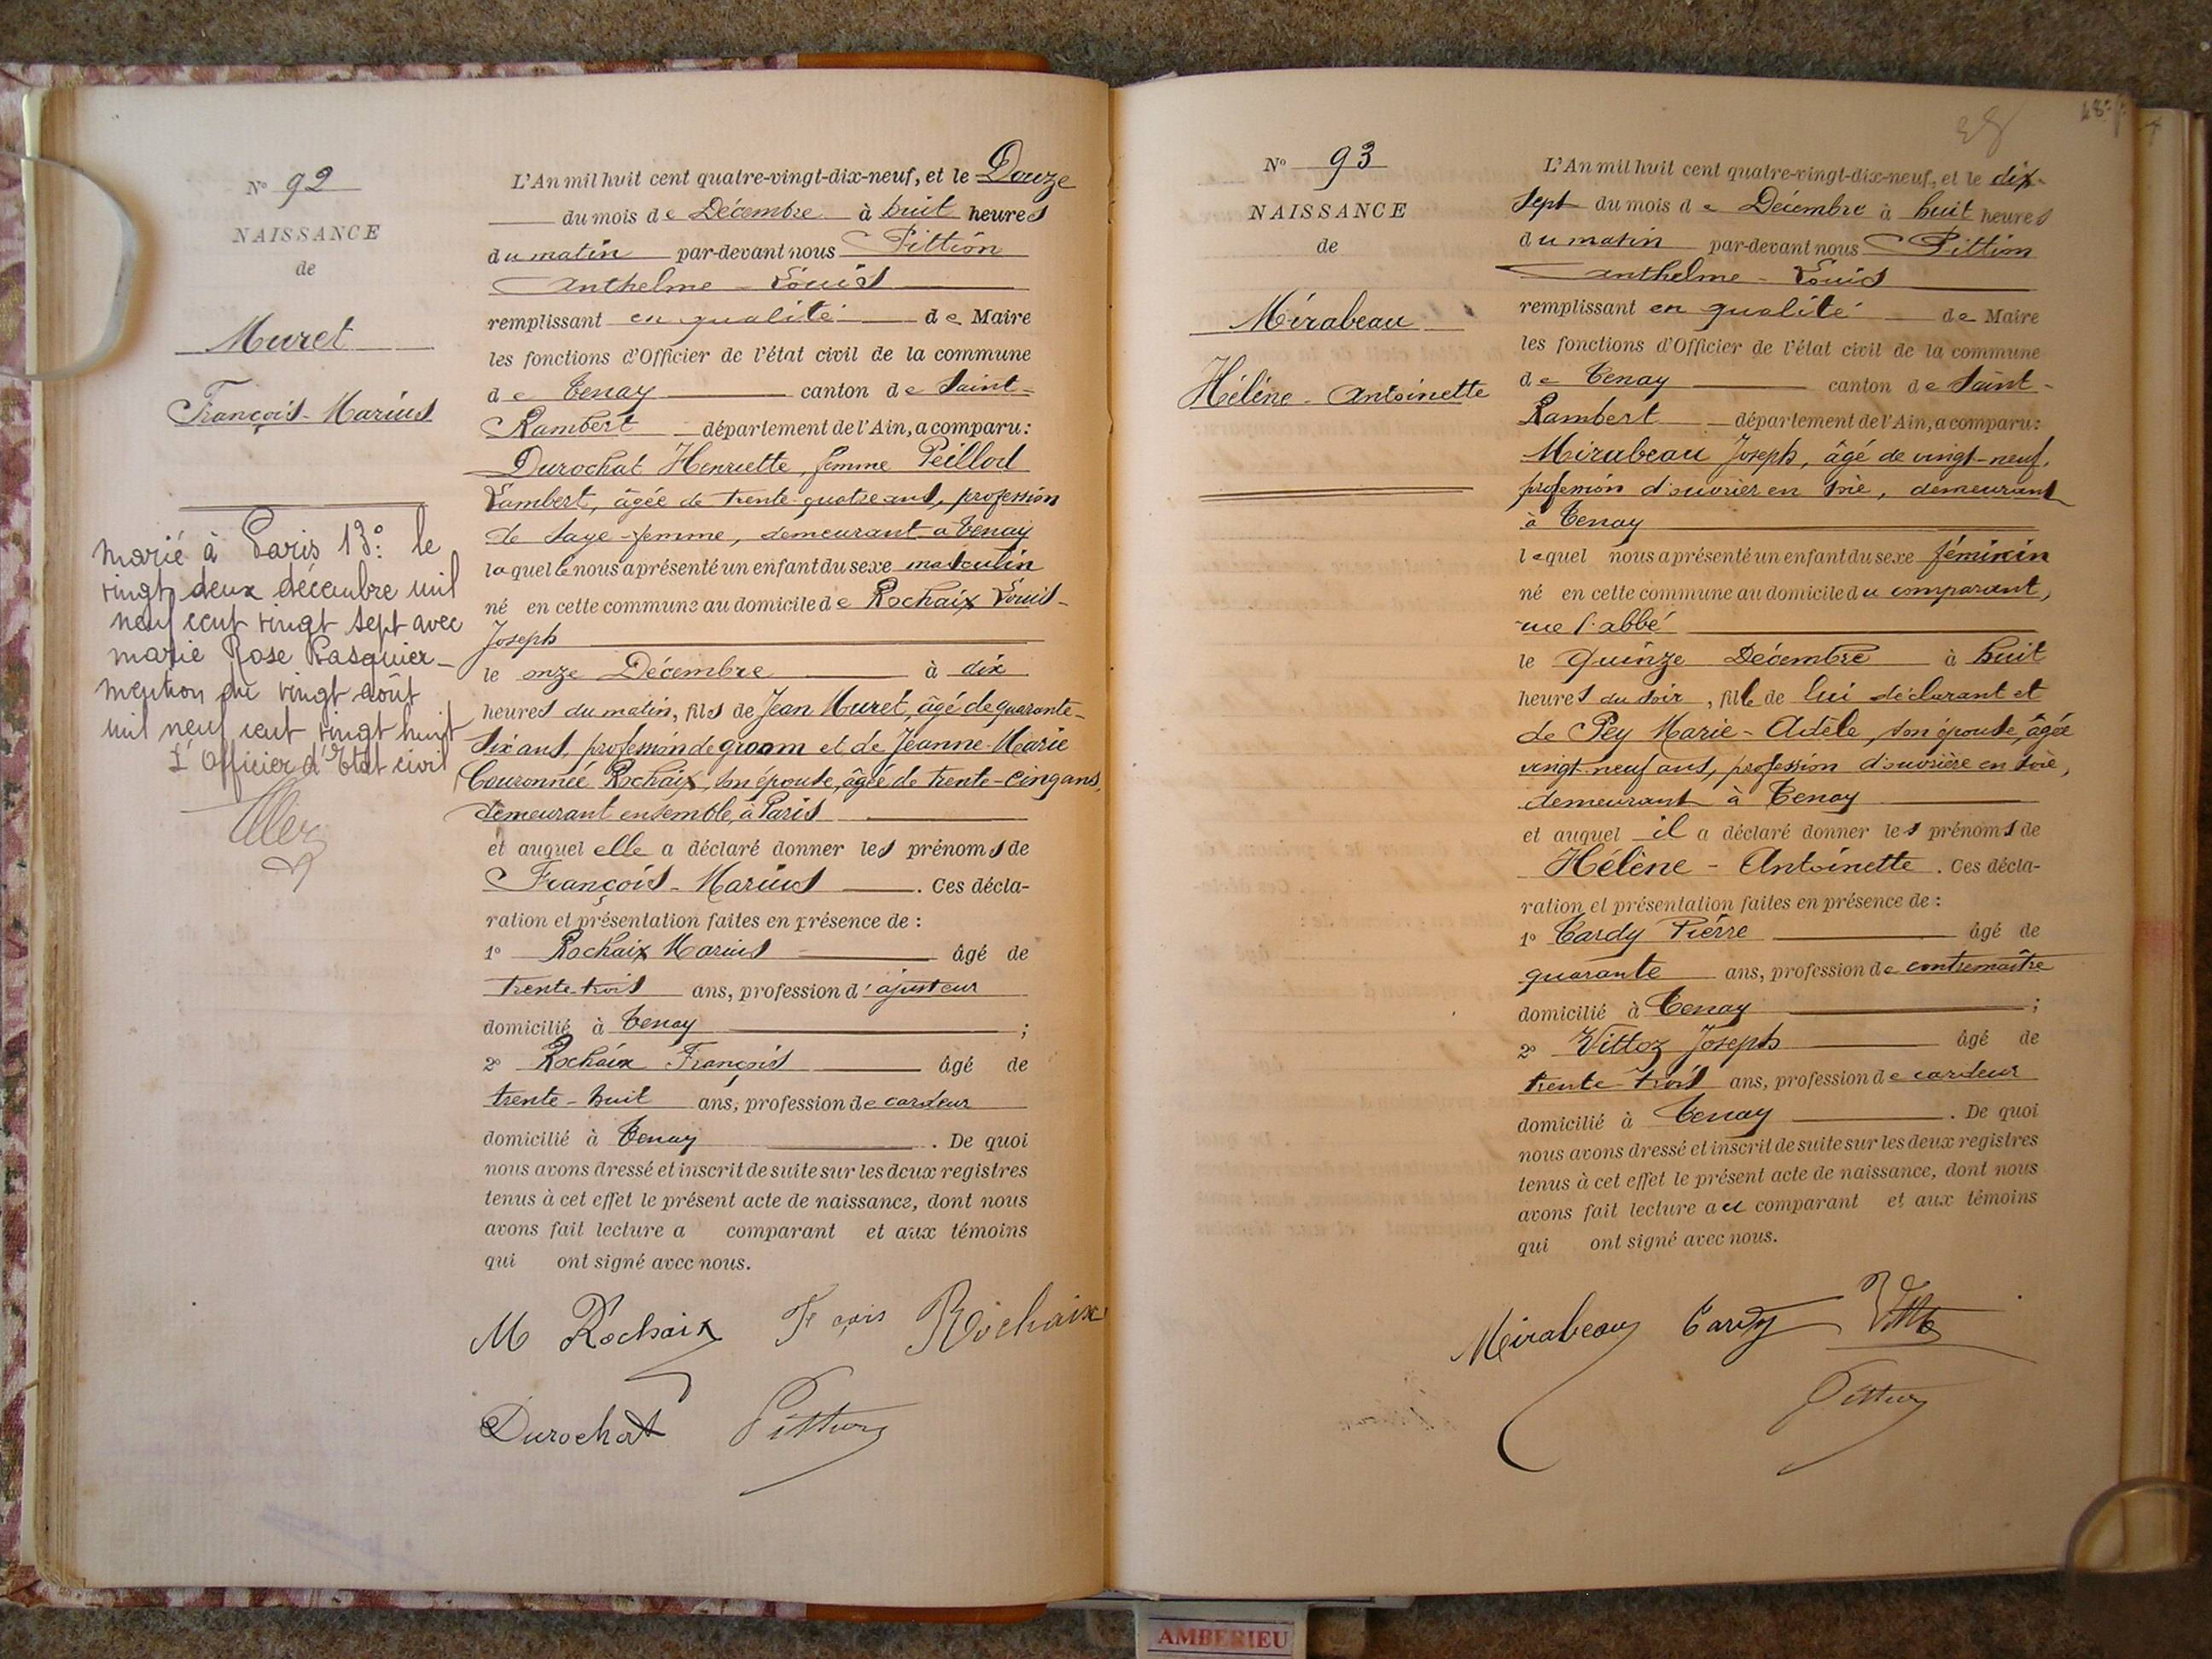 N° 92
NAISSANCE
de
Muret
François-Marius
marié à Paris 13e le
vingt deux décembre mil
neuf cent vingt sept avec
marie Rose Pasquier_
mention du vingt août
mil neuf cent vingt huit
L'Officier d'Etat civil
L'An mil huit cent quatre-vingt-dix-neuf, et le Douze
du mois de Décembre à huit heures
du matin par-devant nous Pittion
Anthelme - Louis
remplissant en qualité de Maire
les fonctions d'Officier de l'état civil de la commune
de Tenay canton de Saint-
Rambert département de l'Ain, a comparu :
Durochat Henriette, femme Peillod
Lambert, âgée de trente-quatre ans, profession
de Sage-femme, demeurant a Tenay
laquelle nous a présenté un enfant du sexe masculin
né en cette commune au domicile de Rochaix Louis-
Joseph
le onze Décembre à dix
heures du matin, fils de Jean Muret, âgé de quarante-
six ans, profession de groom et de Jeanne-Marie
Couronnée Rochaix, son épouse, âgée de trente-cinq ans,
demeurant ensemble, à Paris
et auquel elle a déclaré donner les prénoms de
François-Marius . Ces décla-
ration et présentation faites en présence de :
1° Rochaix Marius âgé de
trente-trois ans, profession d'ajusteur
domicilié à Tenay ;
2° Rochaix François âgé de
trente-huit ans, profession de cardeur
domicilié à Tenay . De quoi
nous avons dressé et inscrit de suite sur les deux registres
tenus à cet effet le présent acte de naissance, dont nous
avons fait lecture a comparant et aux témoins
qui ont signé avec nous.
M Rochaix Fçois Rochaix
Durochat Pittion
28
N° 93
NAISSANCE
de
Mirabeau
Hélène - Antoinette
L'An mil huit cent quatre-vingt-dix-neuf, et le dix-
sept du mois de Décembre à huit heures
du matin par-devant nous Pittion
Anthelme - Louis
remplissant en qualité de Maire
les fonctions d'Officier de l'état civil de la commune
de Tenay canton de Saint-
Rambert département de l'Ain, a comparu :
Mirabeau Joseph, âgé de vingt-neuf,
profession d'ouvrier en soie, demeurant
à Tenay
lequel nous a présenté un enfant du sexe féminin
né en cette commune au domicile du comparant,
rue l'abbé
le quinze Décembre à huit
heures du soir, fille de lui déclarant et
de Pey Marie-Adèle, son épouse, âgée
vingt-neuf ans, profession d'ouvrière en soie,
demeurant à Tenay
et auquel il a déclaré donner les prénoms de
Hélène - Antoinette . Ces décla-
ration et présentation faites en présence de :
1° Tardy Pierre âgé de
quarante ans, profession de contremaître
domicilié à Tenay ;
2° Vittoz Joseph âgé de
trente-trois ans, profession de cardeur
domicilié à Tenay . De quoi
nous avons dressé et inscrit de suite sur les deux registres
tenus à cet effet le présent acte de naissance, dont nous
avons fait lecture au comparant et aux témoins
qui ont signé avec nous.
Mirabeau Tardy Vittoz
Pittion
AMBERIEU